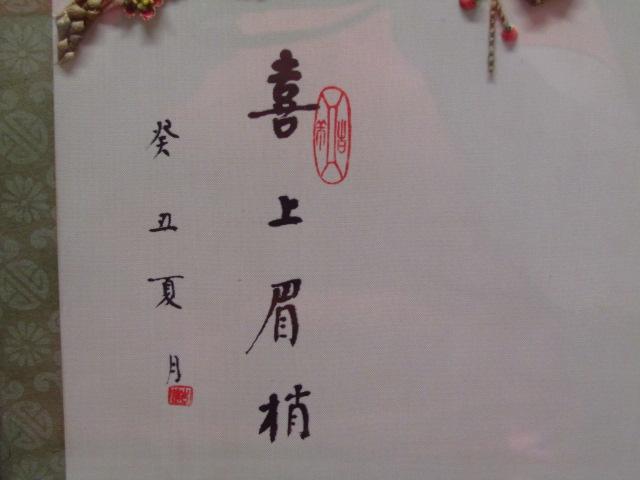 喜上眉梢
癸丑夏月